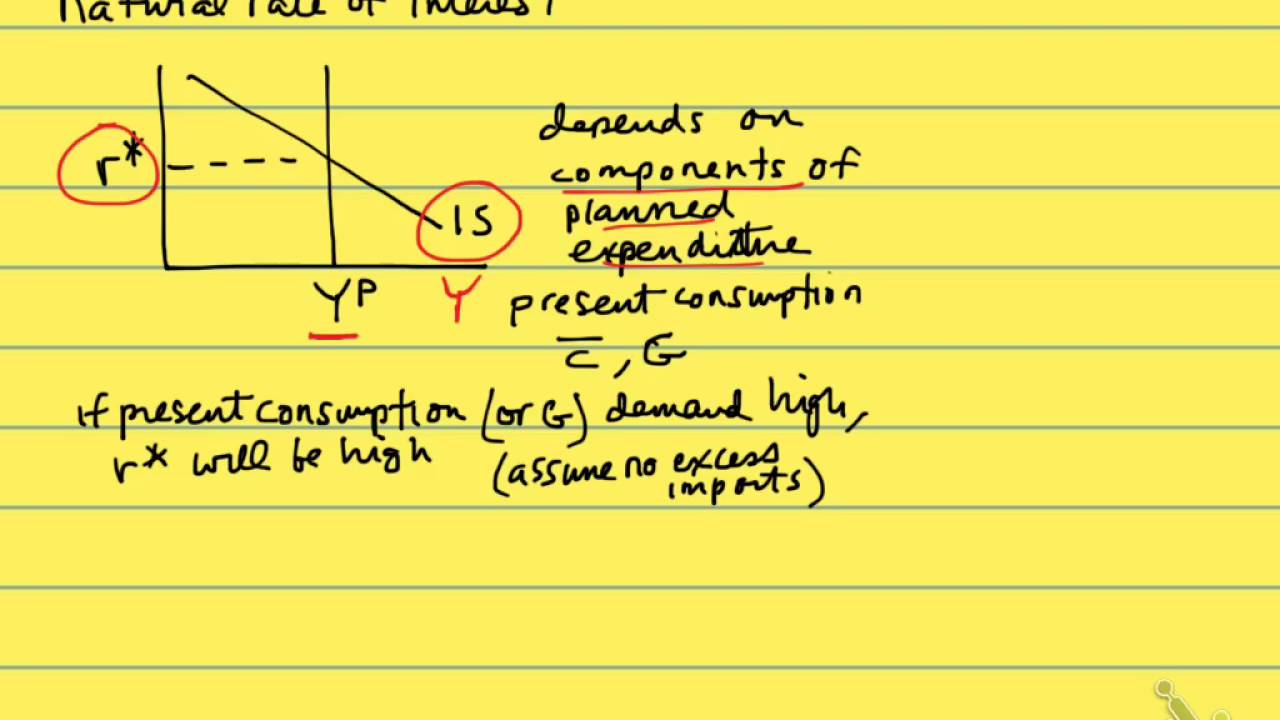 Natural rate of interest
r*
IS
Y^P
Y
depends on
components of
planned
expenditure
present consumption
C̅, G
if present consumption (or G) demand high,
r* will be high (assume no excess
imports)